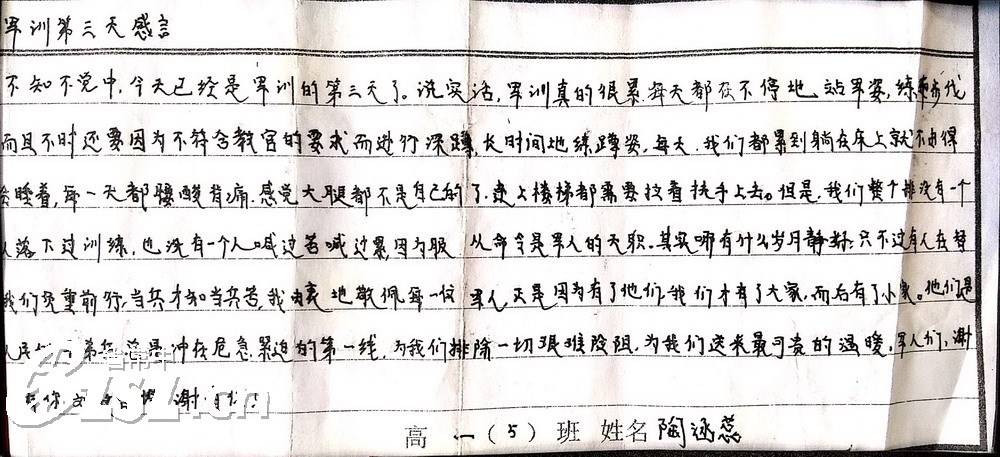 军训第三天感言
不知不觉中,今天已经是军训的第三天了。说实话,军训真的很累每天都在不停地站军姿,练步伐
而且不时还要因为不符合教官的要求而进行深蹲,长时间地练蹲姿,每天,我们都累到躺在床上就不由得
睡着,每一天都腰酸背痛.感觉大腿都不是自己的了.连上楼梯都需要拉着扶手上去。但是,我们整个排没有一个
人落下过训练,也没有一个人喊过苦喊过累,因为服从命令是军人的天职。其实哪有什么岁月静好,只不过有人在替
我们负重前行,当兵才知当兵苦,我由衷地敬佩每一位军人,正是因为有了他们,我们才有了大家,而后有了小家。他们是
人民 弟兵,总是冲在危急紧迫的第一线,为我们排除一切艰难险阻.为我们送来最可贵的温暖,军人们,谢
谢你 谢
高一(5)班 姓名 陶涵蕊